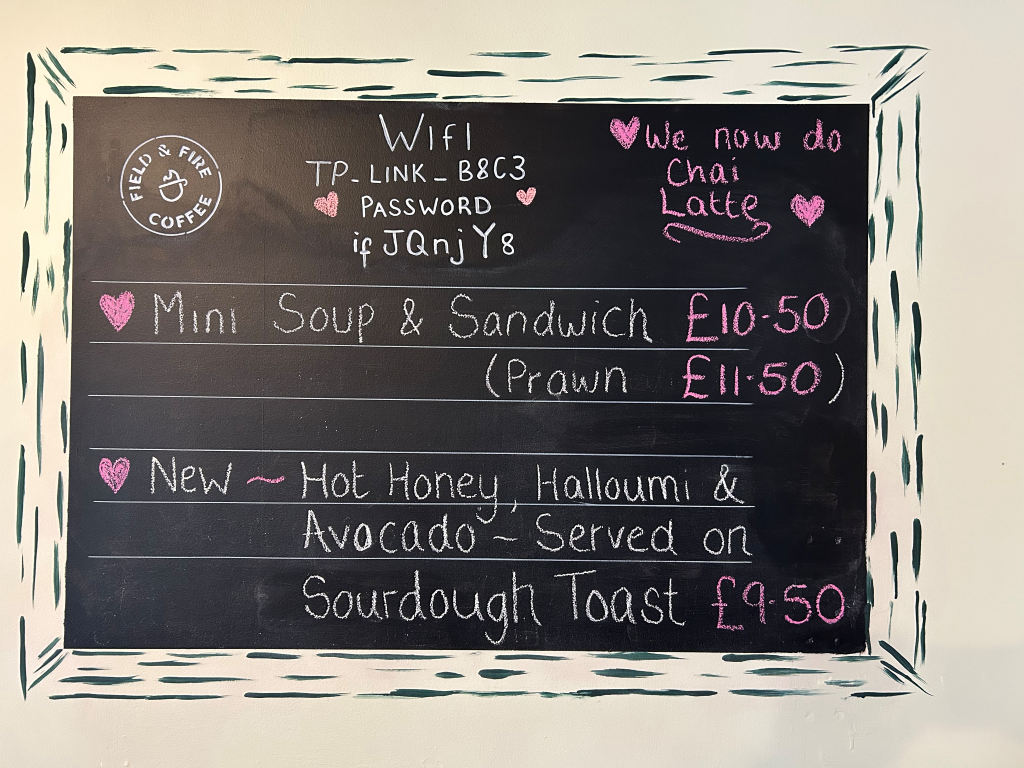 FIELD & FIRE
COFFEE
WIFI
TP_LINK_B8C3
PASSWORD
ifJQnjY8
We now do
Chai
Latte
Mini Soup & Sandwich £10.50
(Prawn £11.50)
New ~ Hot Honey, Halloumi &
Avocado ~ Served on
Sourdough Toast £9.50